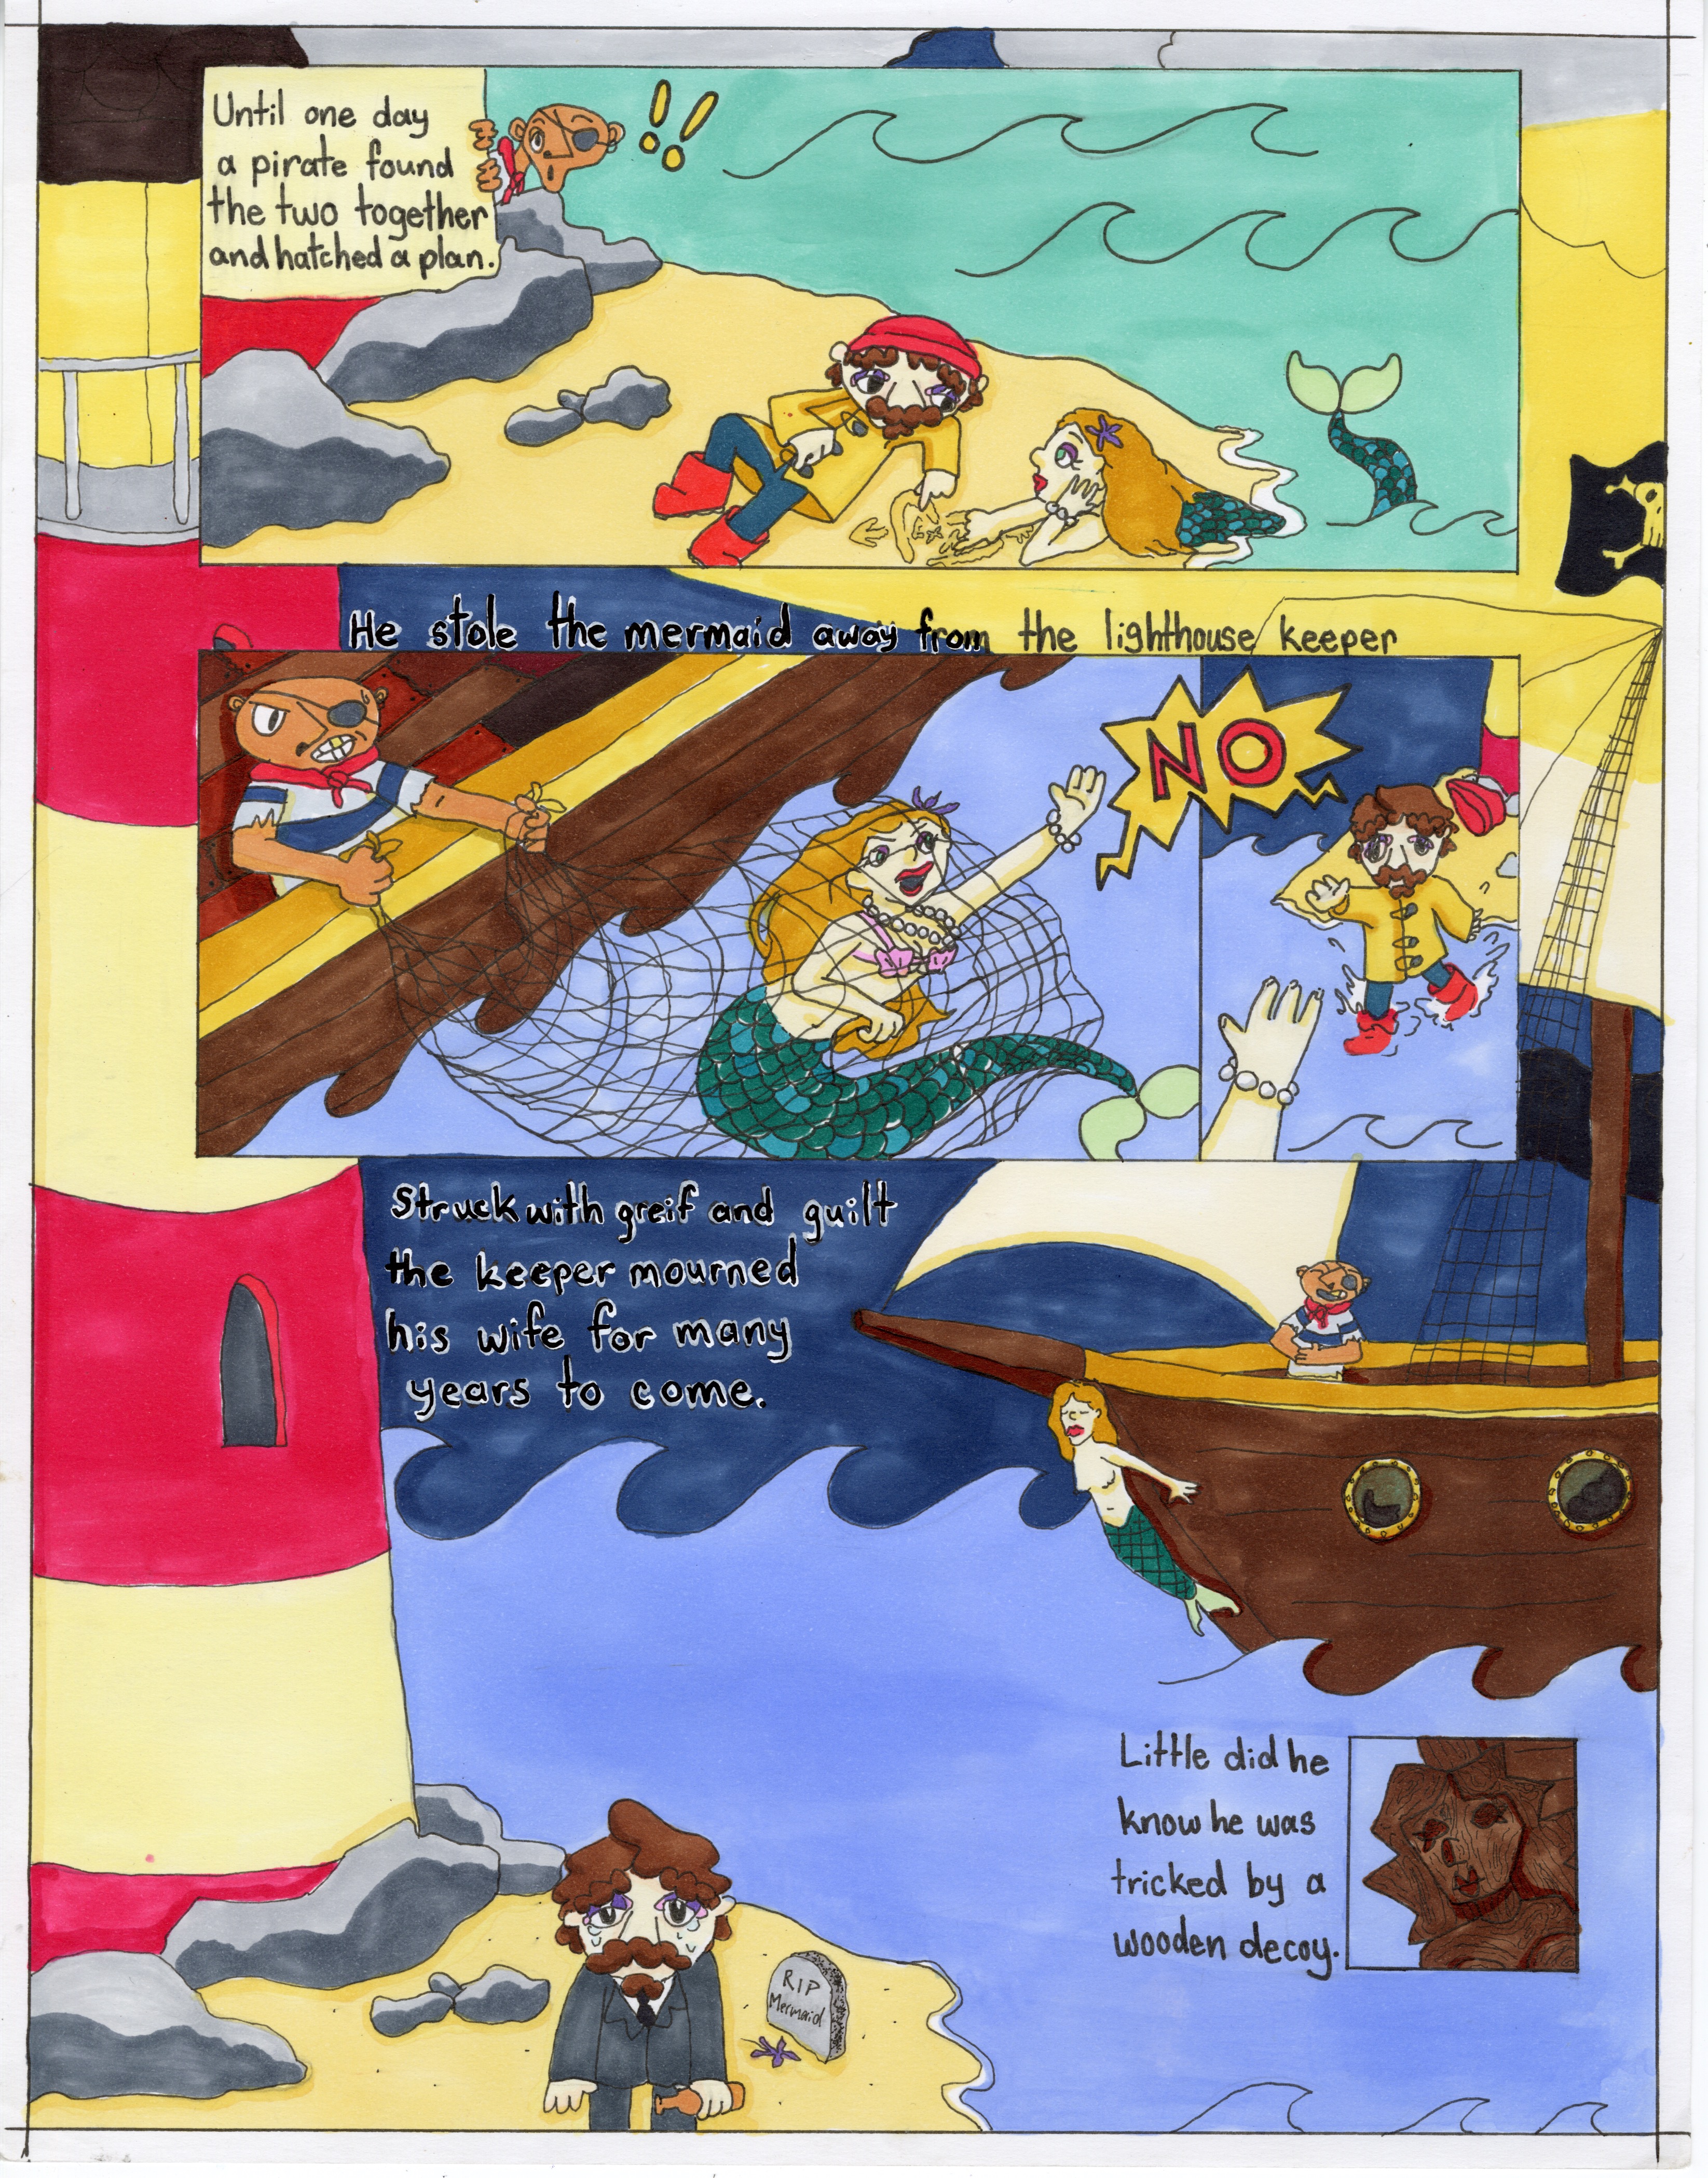 Until one day
a pirate found
the two together
and hatched a plan.
!!
He stole the mermaid away from the lighthouse keeper
NO
Struck with greif and guilt
the keeper mourned
his wife for many
years to come.
Little did he
know he was
tricked by a
wooden decoy.
RIP
Mermaid